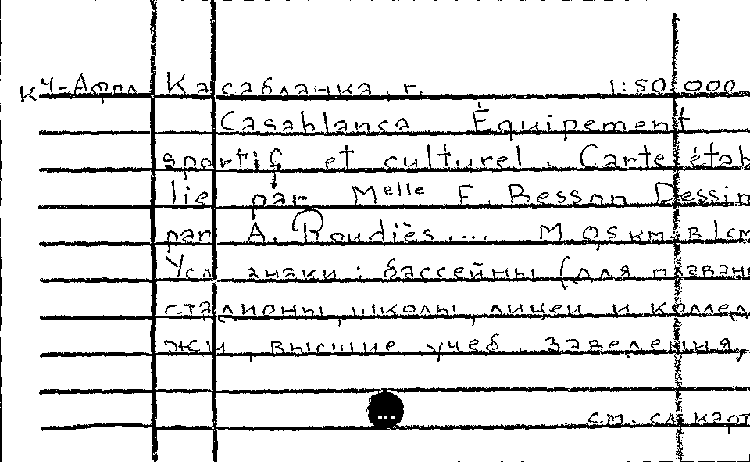 К Ч-Афри Касабланка, г. 1:50 000
Casablanca Équipement
sportif et culturel. Carte étab
lie par Melle F. Besson Dessin
par A. Roudiès.... М. 0,5 км в 1 см
Усл знаки: бассейны (для плаван
стадионы, школы, лицеи и коллед
жи, высшие учеб. заведения,
см. сл карт